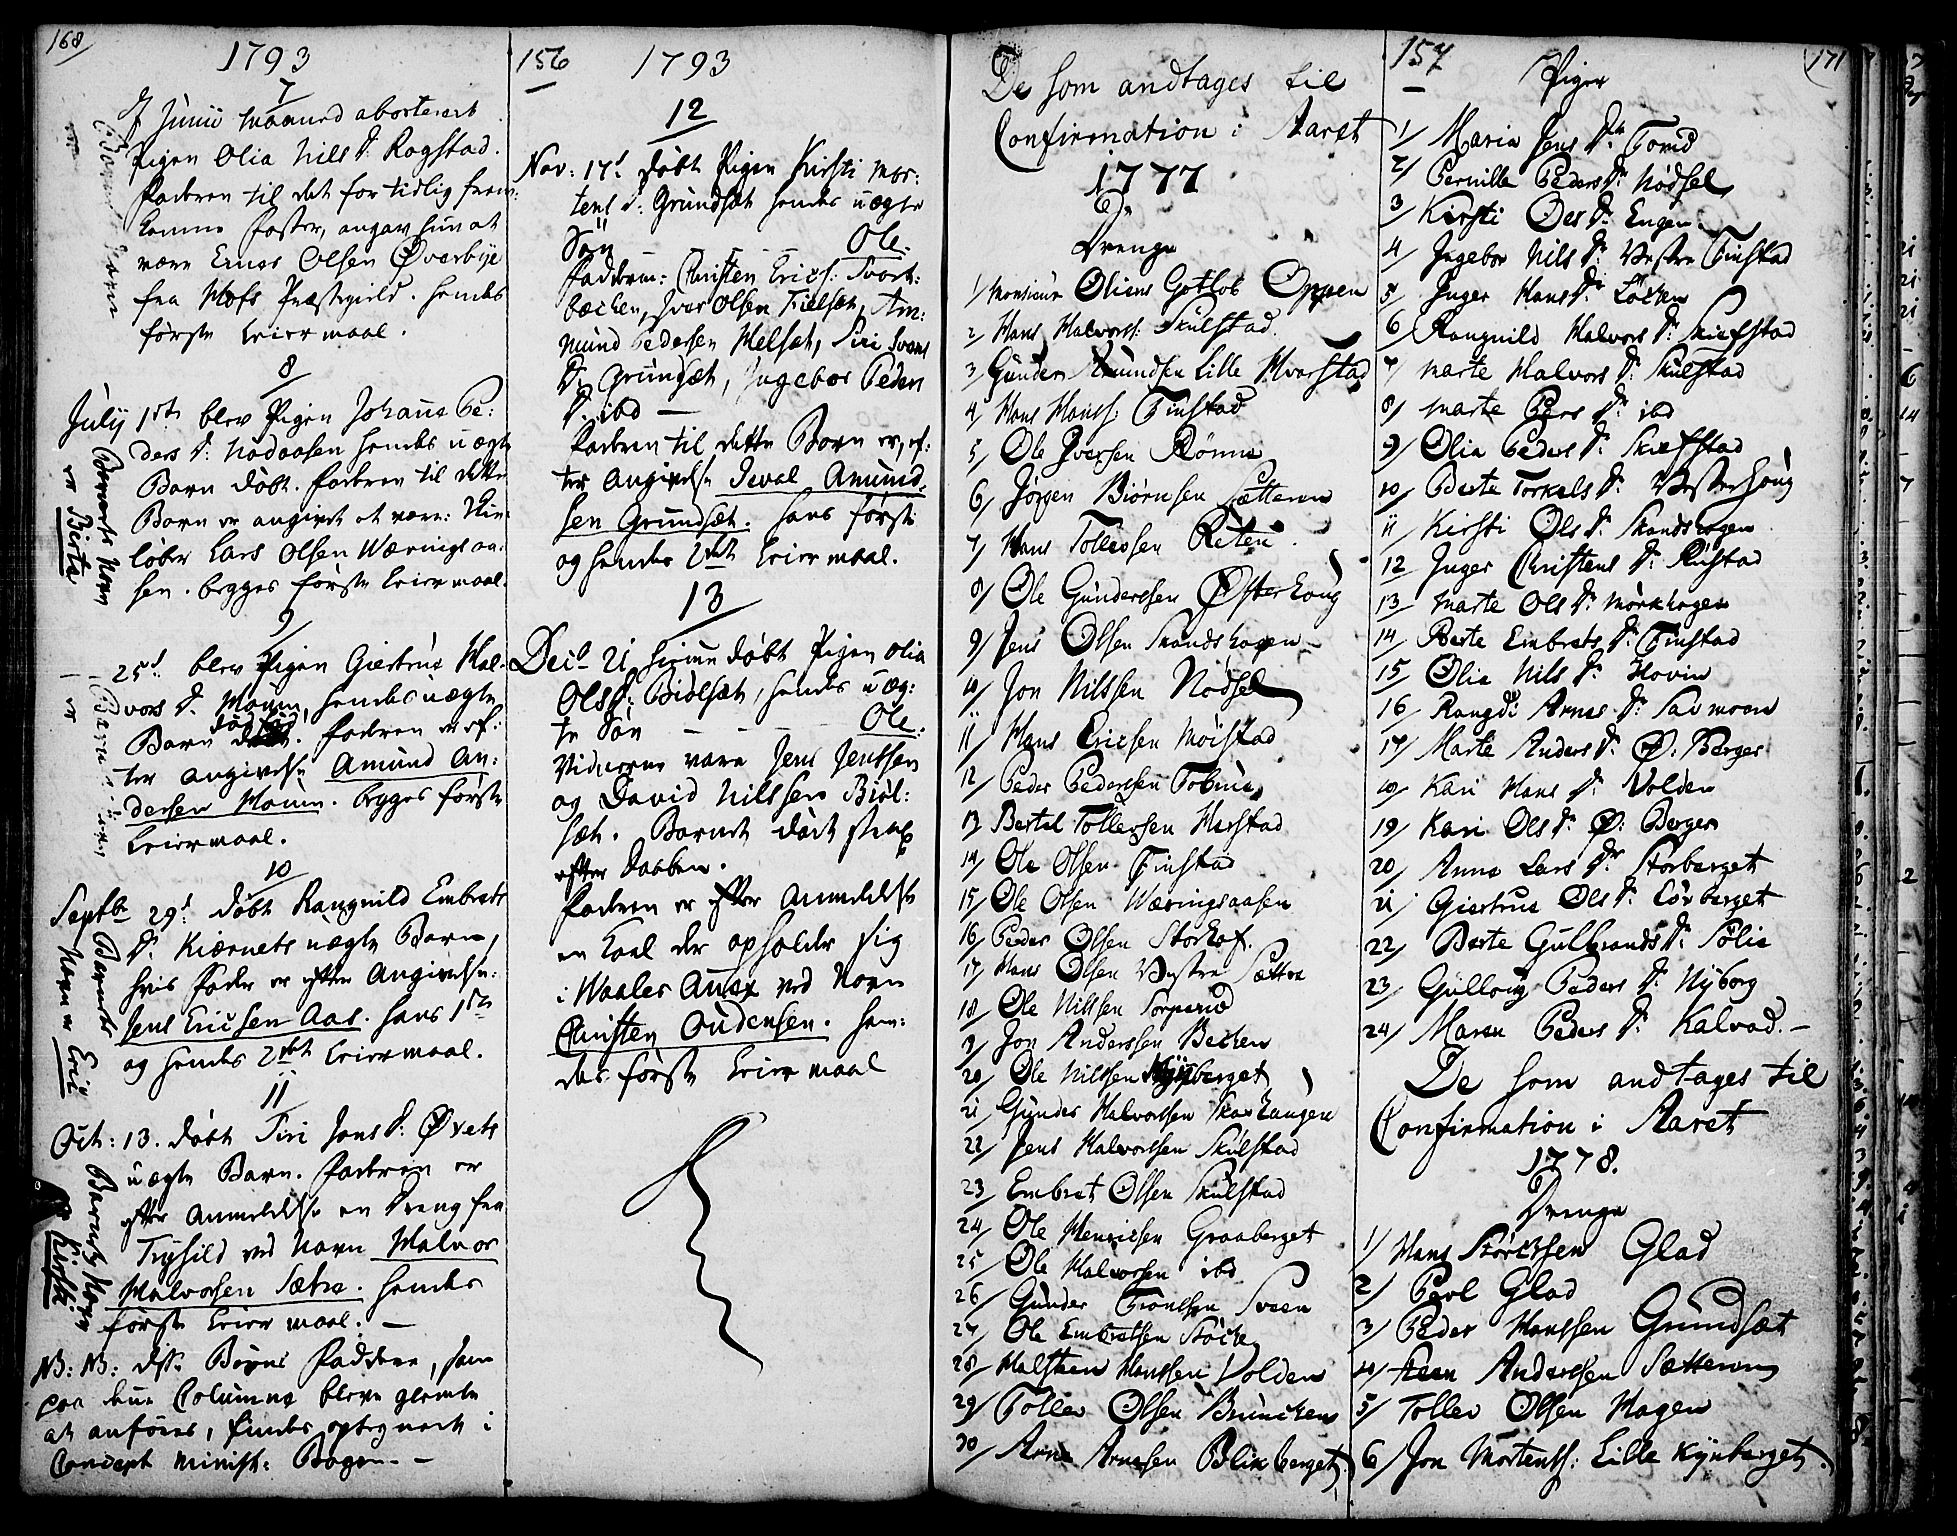 168/
1793
7
J Junii Maaned aborterert
Pigen Olia Nils D: Rogstad.
Faderen til det for tidlig frem-
komne foster, angav hun at
være Ernes Olsen Øverbye
fra Hofs Præstegield. hendes
første Leiermaal.
8
July 1ste blev Pigen Johane Pe:
ders D: Nodaasen hendes uægte
Barn døbt. Faderen til dette
Barn er angivet at være: Ski-
løber Lars Olsen Wæringsaa-
sen. begges første Leiermaal.
Barnets Navn
er Birta
9
25d blev Pigen Giertrue Hal-
vors D. Moum, hendes uægte
Barn dødfød. Faderen er ef:
ter angivelse Amund An:
dersen Moum. begges første
Leiermaal.
10
Septbr 29d døbt Rangnild Embrets
D. Kiærnets uægte Barn,
hvis Fader er efter Angivelse:
Jens Ericsen Aas. hans 1ste
og hendes 2det Leiermaal.
Barnets
Navn er Eric
11
Oct: 13. døbt Siri Jons D: Øvets
uægte Barn. Faderen er
efter Anmeldelse en Dreng fra
Trysild ved Navn Halvor
Halvorsen Sætre. hendes
første Leiermaal. —
Barnets Navn
er Kirsti
NB: NB: disse Børns Faddere, som
paa denne Columne bleve glemte
at anføres, findes optegnet i
Concept Minist: Bogen. —
156
1793
12
Nov: 17d døbt Pigen Kirsti Mor:
tens D: Grundsæt hendes uægte
Søn — — Ole.
Faddere: Christen Erics: Svart-
bæcken, Iver Olsen Fielset, Am:
mund Pedersen Melsæt, Siri Svens
D: Grundsæt, Ingebor Peders
D. ibd —
Faderen til dette Barn er, ef:
ter Angivelse Iewal Amund-
sen Grundsæt. hans første
og hendes 2det Leiermaal.
13
Decb 21 hiemedøbt Pigen Olia
Ols D: Biølset, hendes uæg:
te Søn — — Ole.
Vidnerne vare Jens Jenssen
og David Nilssen Biøl:
sæt. Barnet døde strax
efter Daaben.
Faderen er efter Anmeldelse
en Karl der opholder sig
i Waaler Anex ved Navn
Christen Oudensen. hen:
des første Leiermaal
De som andtages til
Confirmation i Aaret
1777
Drenge
1/ Monsieur Oliens Gotlob Oppen
2/ Hans Halvors: Skulstad.
3/ Gunder Amundsen Lille Hvarstad
4/ Hans Hanss: Finstad
5/ Ole Iversen Rønne
6/ Jørgen Biørnsen Sætteren
7/ Hans Tollevsen Reten
8/ Ole Gunderssen Østerhaug
9/ Jens Olssen Skandshagen
10/ Jon Nilssen Nødsel
11/ Hans Ericsen Moistad
12/ Peder Pederssen Tobine
13/ Bertel Tollefsen Harstad
14/ Ole Olsen Finstad
15/ Ole Olsen Wæringsaasen
16/ Peder Olssen Storhof.
17/ Hans Olssen Vestre Sættre
18/ Ole Nilssen Sorperud
9/ Jon Anderssen Becken
20/ Ole Nilssen Kynberget
21/ Gunder Halvorssen Skarhaugen
22/ Jens Halvorssen Skulstad
23/ Embret Olssen Skulstad
24/ Ole Henricsen Graaberget
25/ Ole Halvorsen ibd
26/ Gunder Tronssen Sveen
27/ Ole Embretssen Støcke
28/ Halsteen Hanssen Volden
29/ Tollev Olssen Brunchens
30/ Arne Arnesen Blixberget
157 171
Piger
1/ Maria Jens Dr Tomd
2/ Pernille Peders Dr Nødsel
3/ Kirsti Oles Dr: Engen.
4/ Ingebor Nils Dr: Vestre Finstad
5/ Inger Hans Dr Løcken
6/ Rangnild Halvors Dr: Skiefstad
7/ Marte Halvors Dr: Skulstad
8/ Marte Pers Dr: ibd
9/ Olia Peders Dr: Skiefstad
10/ Berte Torkels Dr: Vesterhoug
11/ Kirsti Ols Dr: Skandshagen
12 Inger Christens Dr: Rustad
13/ Marte Ols Dr: Mørkhagen
14/ Berte Embrets Dr: Finstad
15/ Olia Nils Dr: Hovin
16/ Rangdi Arnes Dr: Sai moen
17/ Marte Anders Dr: Ø: Berger
18/ Kari Hans Dr: Volden
19/ Kari Ols Dr: Ø: Bergen
20/ Anne Lars Dr Storberget
21/ Giertrue Ols Dr: Løvberget
22/ Berte Gulbrands Dr: Sølie
23/ Gulloug Peders Dr: Nyborg
24/ Maren Peders Dr: Kalvad. —
De som andtages til
Confirmation i Aaret
1778.
Drenge
1/ Hans Størckssen Glad
2/ Povl Glad
3/ Peder Hanssen Grundsæt
4/ Anderssen Sætteren
5/ Tollev Olssen Hagen
6/ Jon Mortenss: Lille Kynberget.